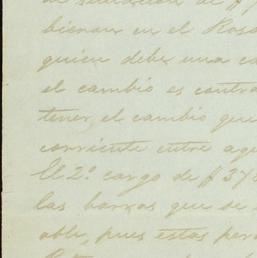 bienan en el Rosa
quien debe una ca
el cambio es contra
tener, el cambio que
corriente entre aqu
El 2º cargo de $ 376
las barras que se
able, pues estas per